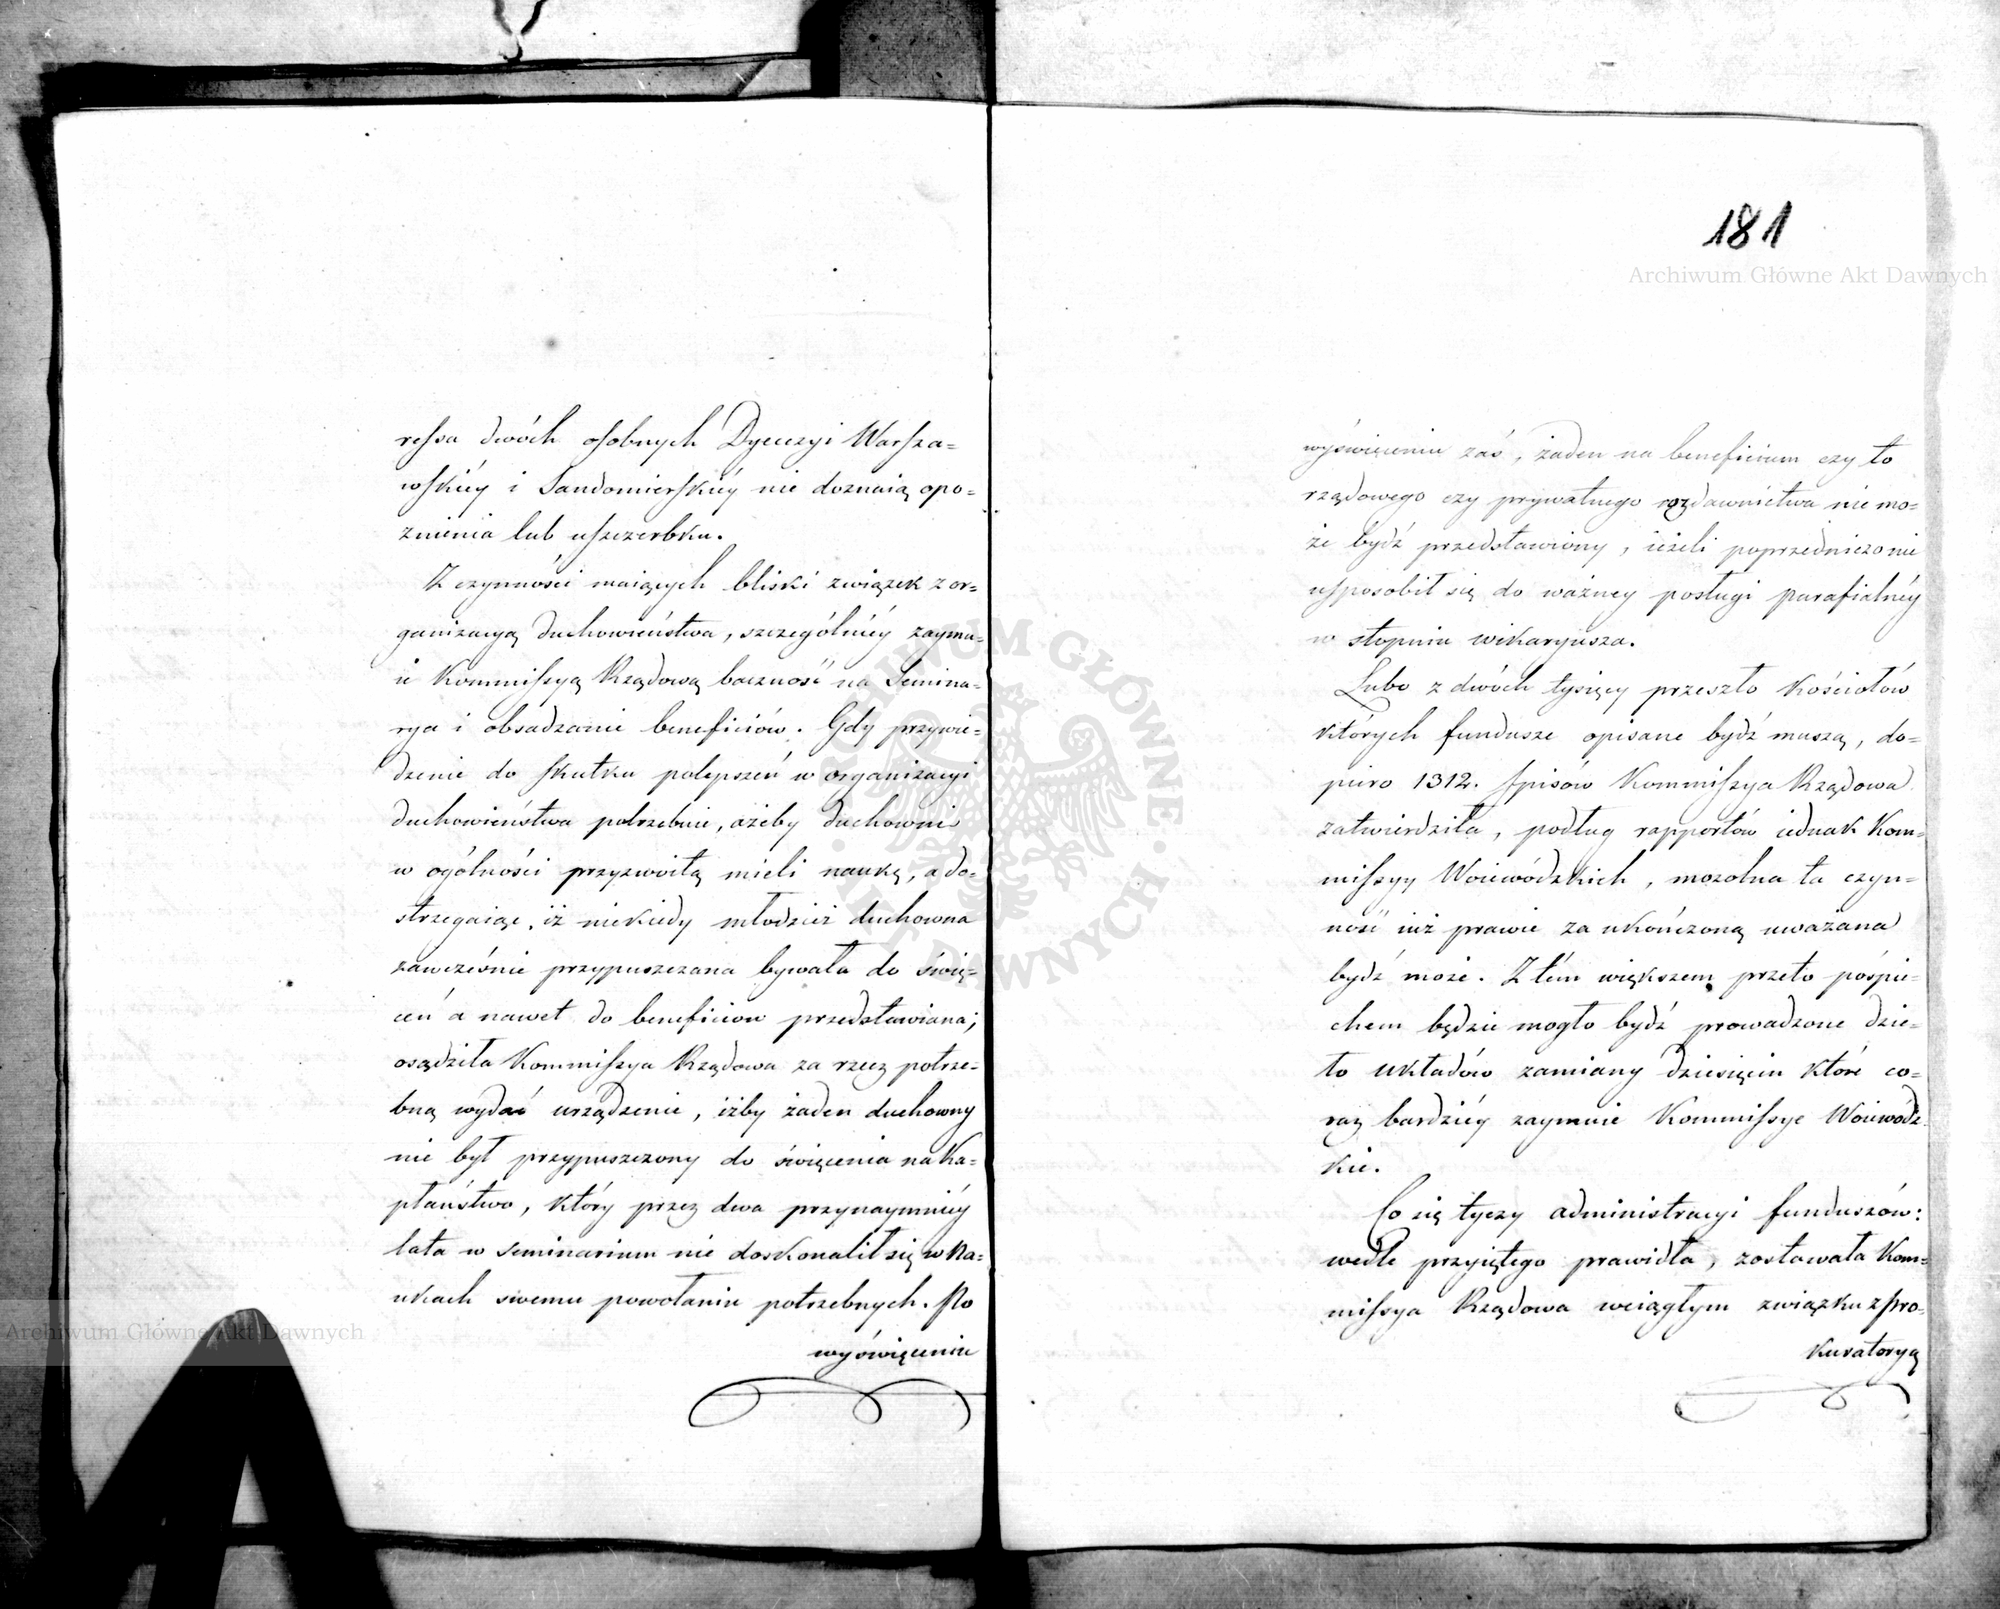 ressa dwóch osobnych Dyecezyi Warsza=
wskiéy i Sandomierskiéy nie doznaią opo=
znienia lub uszczerbku.
Z czynności maiących bliski związek z or=
ganizacyą duchowieństwa, szczególniéy zaymu=
ie Kommissyą Rządową baczność na Semina=
rya i obsadzanie beneficiów. Gdy przywie=
dzenie do skutku polepszeń w organizacyi
duchowieństwa potrzebuie, ażeby duchowni
w ogólności przyzwoitą mieli naukę, a do=
strzegaiąc, iż niekiedy młodzież duchowna
zawcześnie przypuszczana bywała do świę=
ceń a nawet do beneficiow przedstawiana;
osądziła Kommissya Rządowa za rzecz potrze=
bną wydać urządzenie, iżby żaden duchowny
nie był przypuszczony do święcenia na Ka=
płaństwo, który przez dwa przynaymniéy
lata w seminarium nie doskonalił się w na=
ukach swemu powołaniu potrzebnych. Po
wyświęceniu
181
wyświęceniu zaś, żaden na beneficium czy to
rządowego czy prywatnego rozdawnictwa nie mo=
że bydź przedstawiony, ieżeli poprzedniczo nie
usposobił się do ważney posługi parafialnéy
w stopniu wikaryusza.
Lubo z dwóch tysięcy przeszło Kościołów
których fundusze opisane bydź muszą, do=
piero 1312. spisów Kommissya Rządowa
zatwierdziła, podług rapportów iednak Kom=
missyy Woiewódzkich, mozolna ta czyn=
ność iuż prawie za ukończoną uważana
bydź może. Z tém większem przeto pośpie=
chem będzie mogło bydź prowadzone dzie=
ło układów zamiany dziesięcin które co=
raz bardziéy zaymuie Kommissye Woiewódz=
kie.
Co się tyczy administracyi funduszów:
wedle przyiętego prawidła, zostawała Kom=
missya Rządowa w ciągłym związku z Pro=
kuratoryą
Archiwum Główne Akt Dawnych
ARCHIWUM GŁÓWNE AKT DAWNYCH
Archiwum Główne Akt Dawnych